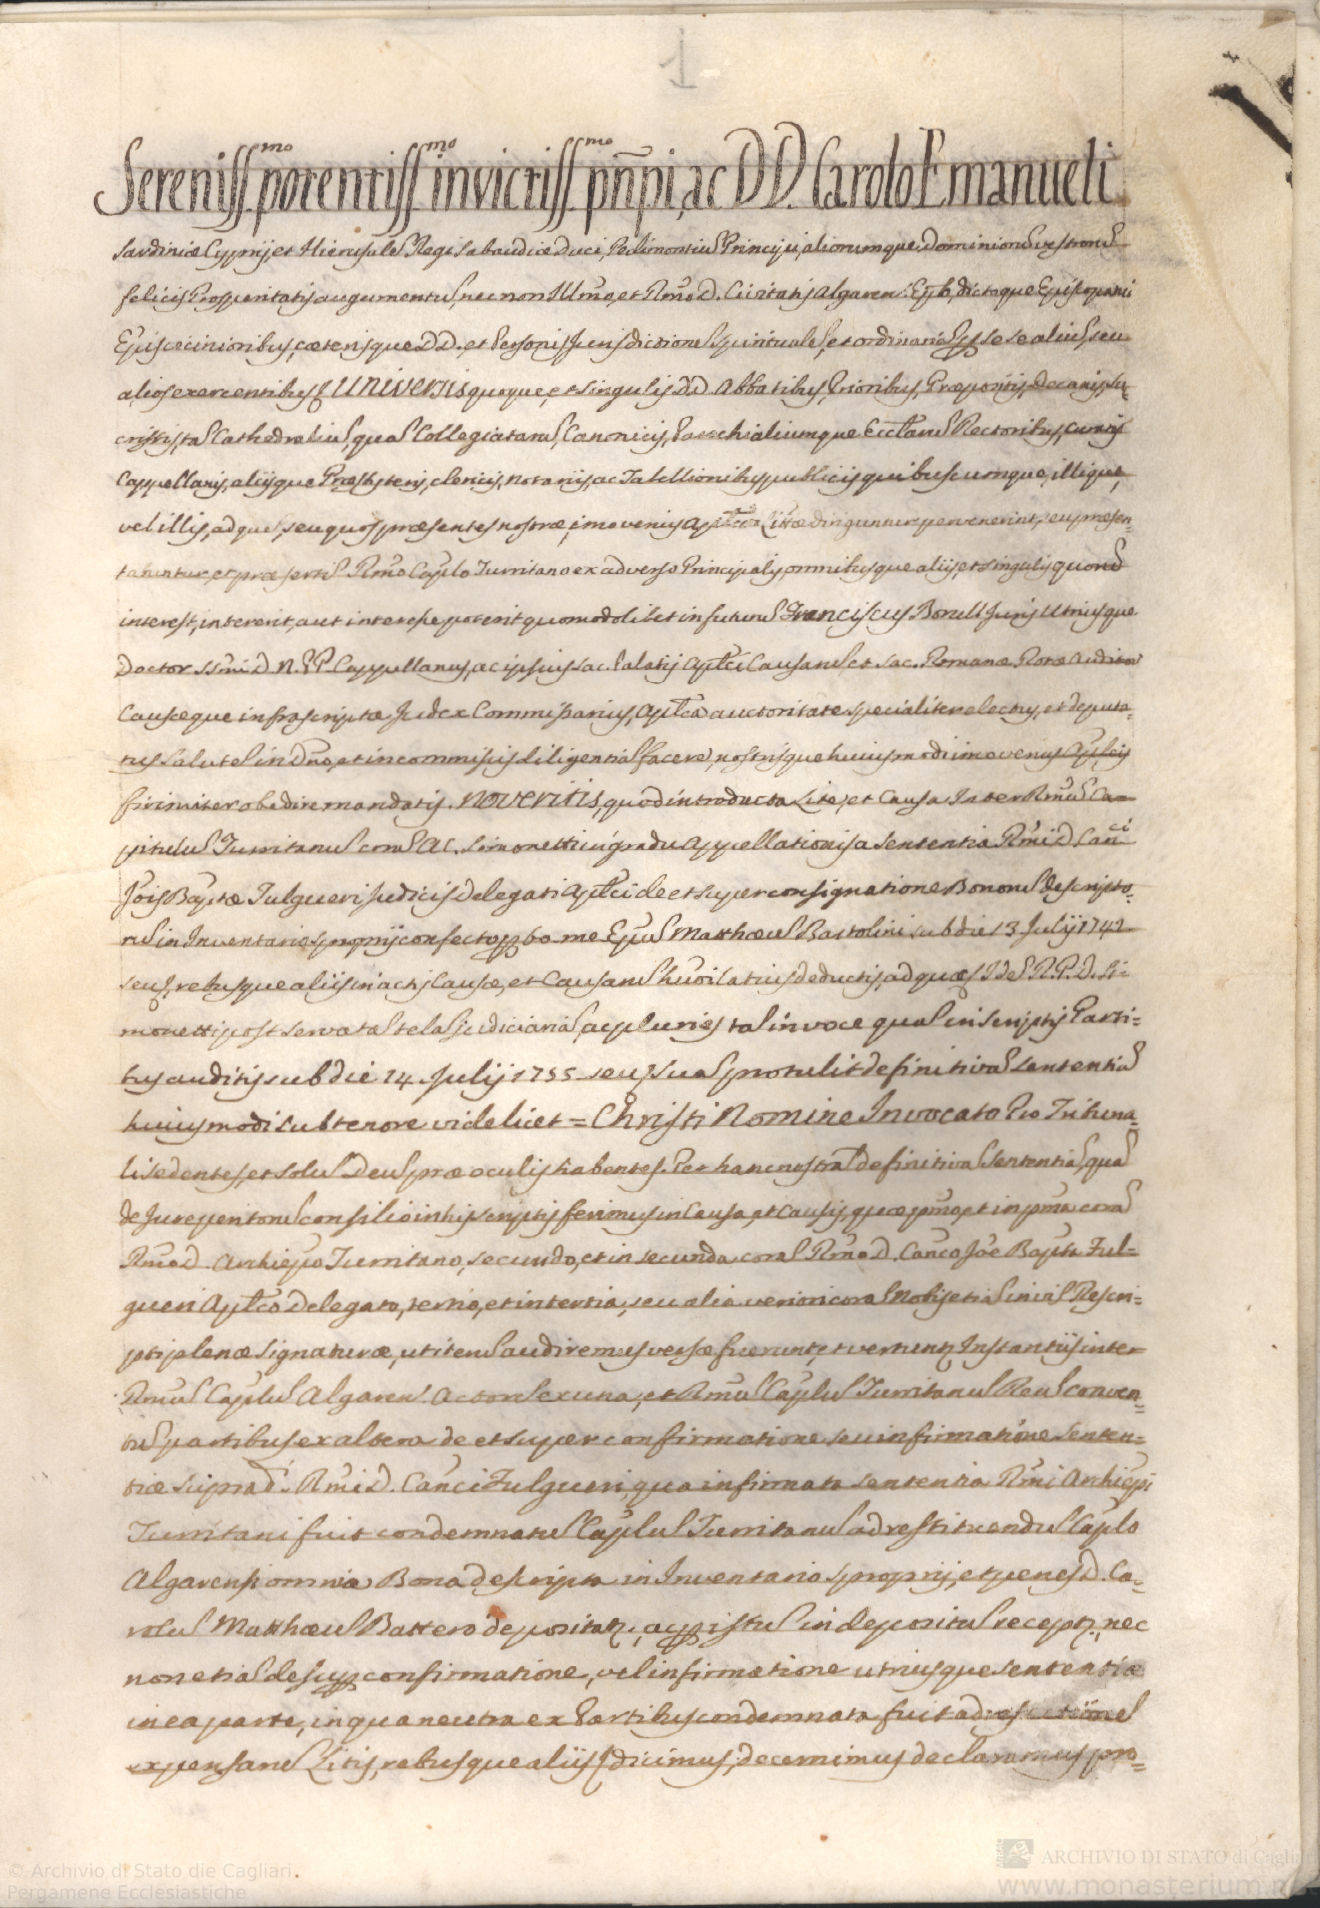 1
Sereniss.mo potentiss.mo invictiss.mo pñpi, ac DD. Carolo Emanueli
Sardiniæ Cyprij et Hierusale Regi Sabaudiæ Duci, Pedimontiu Principi, aliorumque Dominioru vestroru
felicis Prosperitatis augumentu, nec non Illmo, et Rmo D. Civitatis Algaren: Epõ, dictoque Episcopatui
alios exercentibus, Universis quoque, et singulis DD. Abbatibus, Prioribus, Præpositis, Decanis, Sa-
cristis, ta Cathedraliu, qua Collegiataru, Canonicis, Parochialiumque Eccllaru Rectoribus, curatis
Cappellanis, aliisque Præsbyteris, clericis, notariis, ac Tabellionibus publicis quibuscumque, illique,
vel illis, ad que, seu quos præsentes nostræ, imo verius Aplicæ Litræ diriguntur, pervenerint, seu præsen-
tabuntur, et præserti Rmo Caplo Turritano ex adverso Principalis, omnibusque aliis, et singulis quoru
interest, intererit, aut interesse poterit quomodolibet in futuru Franciscus Borull Juris Utriusque
Doctor SSmi D. N. PP. Cappellanus, ac ipsius sac. Palatij Aplici Causaru, et Sac. Romanæ Rotæ Auditor
Causæque infrascriptæ Judex Commissarius, Aplica auctoritate specialiter electus, et deputa-
tus Salute in Dno, et in commissis diligentia facere, nostrisque huiusmodi imo verius Aplicis
firmiter obedire mandatis. Noveritis, quod introducta Lite, et Causa Inter Rmu Ca-
pitulu Turritanu cora AC. Simonetti in gradu Appellationis a Sententia Rmi D. Canci
Jois Baptæ Fulgueri Judicis Delegati Aplici de et super consignatione Bonoru descripto-
ru in Inventario sproprij confecto p bo: me: Epu Matthæu Bartolini sub die 13 Julij 1742
seu, rebusque aliis in actis Causæ, et Causaru huiõi latius deductis, ad quæ Ide R.P.D. Si-
monetti post servata tela judiciaria, ac pluries ta in voce qua in scriptis Parti-
bus auditis sub die 14 Julij 1755 seu, sua protulit definitiva sententia
huiusmodi sub tenore videlicet = Christi Nomine Invocato Pro Tribuna-
li sedentes, et solu Deu præ oculis habentes. Per hanc nostra definitiva sententia, qua
de Jure peritoru consilio in his scriptis ferimus in Causa, et Causis, quæ pmo, et in pma cora
Rmo D. Archiepo Turritano, secundo, et in secunda cora Rmo D. Canco Joe Bapta Ful-
gueri Aplico Delegato, tertio, et in tertia, seu alia veriori cora Nobis etia in vi Rescri-
pti plenæ Signaturæ, uti item audiremus versæ fuerunt, et vertunt Instantiis inter
Rmu Caplu Algaren: Actore ex una, et Rmu Caplu Turritanu Reu conven-
tu partibus ex altera de et super confirmatione seu infirmatione Senten-
Rmi D. Canci Fulgueri, qua infirmata sententia Rmi Archiepi
Turritani fuit condemnatu Caplu Turritanu ad restituendu Caplo
Algarensi omnia Bona descripta in Inventario sproprij, et penes D. Ca-
rolu Matthæu Battero depositat, ac p istu in depositu recept, nec
non etia de sup confirmatione, vel infirmatione utriusque sententiæ
in ea parte, in qua neutra ex Partibus condemnata fuit ad refectione
expensaru Litis, rebusque aliis, dicimus, decernimus, declaramus, pro-
© Archivio di Stato die Cagliari.
Pergamene Ecclesiastiche
ARCHIVIO DI STATO di Cagliari
www.monasterium.ne